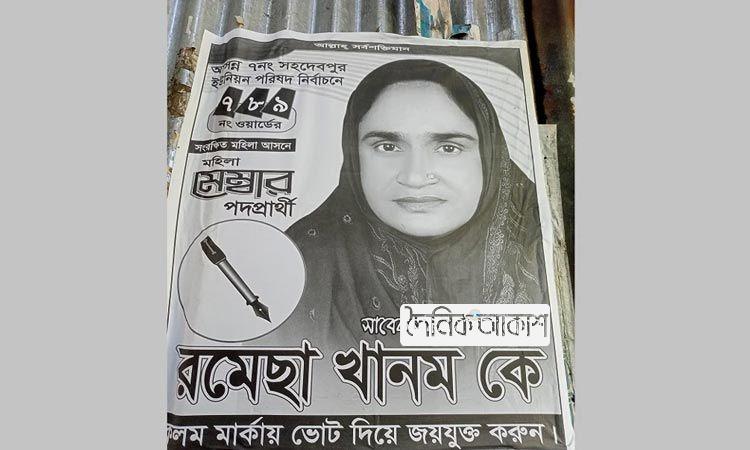 আল্লাহ্ সর্বশক্তিমান
৭নং সহদেবপুর
ইউনিয়ন পরিষদ নির্বাচনে
৭ ৮ ৯
নং ওয়ার্ডের
সংরক্ষিত মহিলা আসনে
মহিলা
মেম্বার
পদপ্রার্থী
দৈনিক আকাশ
রমেছা খানম কে
কলম মার্কায় ভোট দিয়ে জয়যুক্ত করুন।